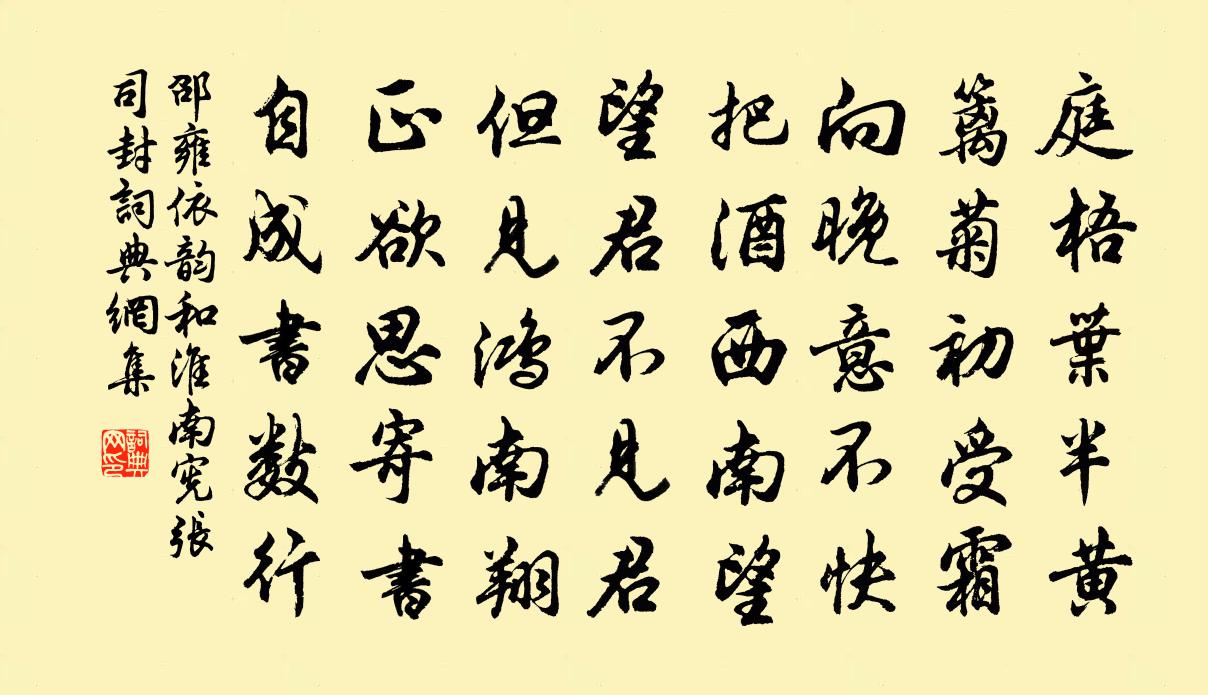 庭梧葉半黄
籬菊初受霜
向晚意不快
把酒西南望
望君不見君
但見鴻南翔
正欲思寄書
自成書數行
邵雍依韵和淮南憲張
司封詞典網集
詞典
网印